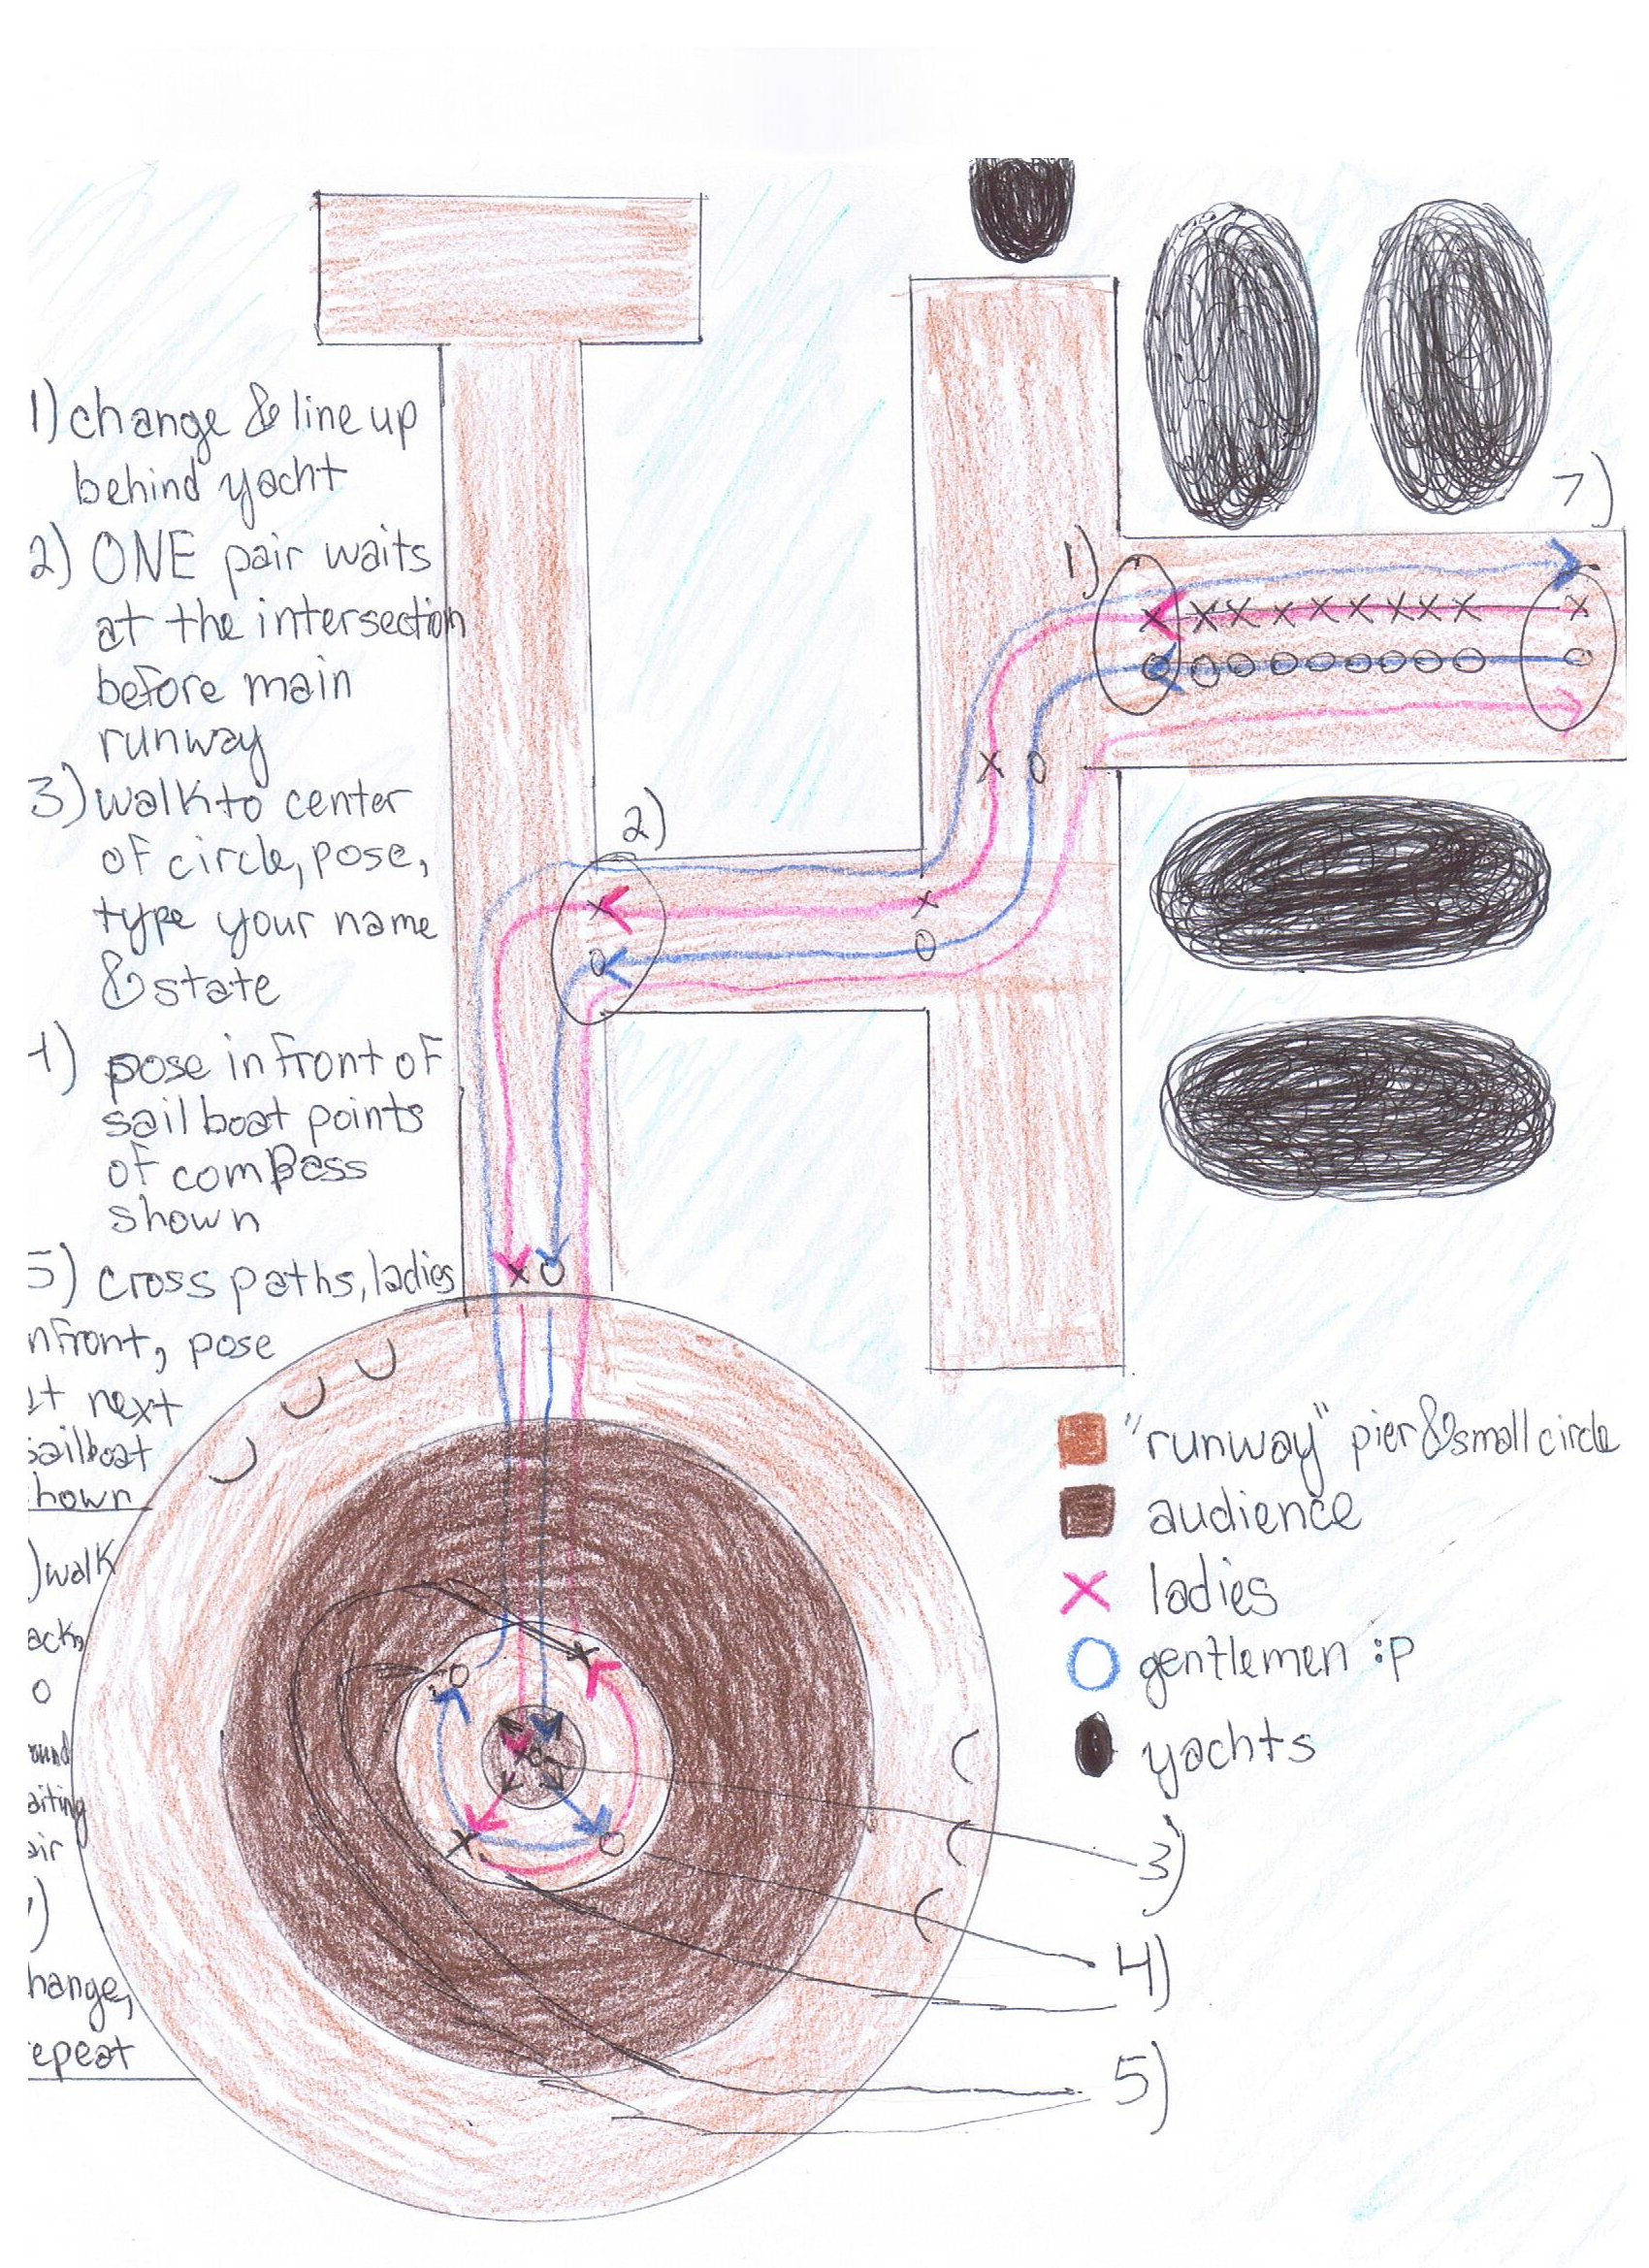 1) change & line up
behind yacht
2) ONE pair waits
at the intersection
before main
runway
3) walk to center
of circle, pose,
type your name
& state
4) pose in front of
sail boat points
of compass
shown
5) cross paths, ladies
nfront, pose
at next
sailboat
hown
) walk
ack,
o
ound
aiting
air
)
hange,
epeat
1)
2)
7)
"runway" pier & small circle
audience
ladies
gentlemen :p
yachts
3)
4)
5)